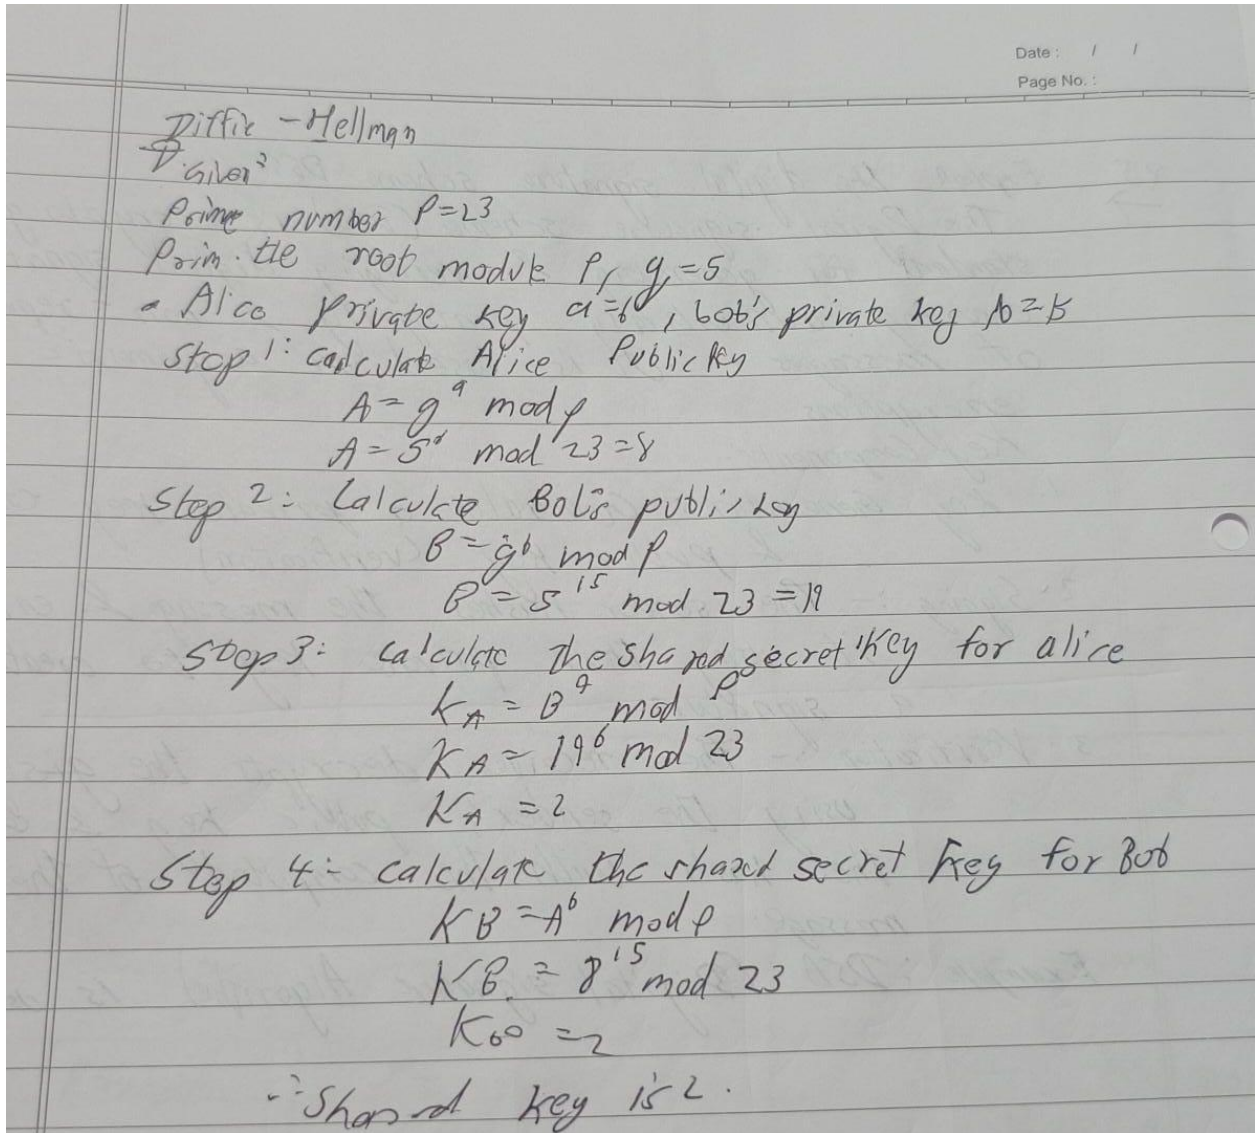 Date : / /
Page No. :
Diffie - Hellman
Given
Prime number P=23
Prim.tle root module P, g=5
Alice private key a=6, bob's private key b=15
Step 1: calculate Alice Public key
A = g^a mod p
A = 5^6 mod 23 = 8
Step 2: Calculate Bob's public key
B = g^b mod p
B = 5^15 mod 23 = 19
Step 3: calculate the shared secret key for alice
K_A = B^a mod p
K_A = 19^6 mod 23
K_A = 2
Step 4:- calculate the shared secret key for Bob
KB = A^b mod p
KB = 8^15 mod 23
= 2
∴ Shared key is 2.